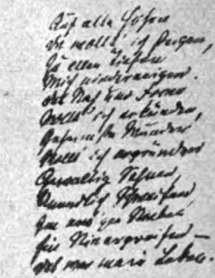 Auf alle Höhen
Da wollt' ich steigen,
Zu allen Tiefen
Mich niederneigen.
Das Nah und Ferne
Wollt' ich erkünden,
Geheimste Wunder
Wollt' ich ergründen
Gewaltig Sehnen,
Unendlich Schweifen
Im ew'gen Streben
Ein Nieergreifen –
Das war mein Leben.